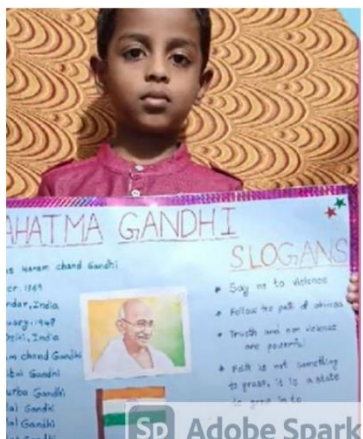 AHATMA GANDHI
SLOGANS
as Karam chand Gandhi
1869
ndar, India
uary, 1948
Delhi, India
m chand Gandhi
Gandhi
urba Gandhi
lal Gandhi
lal Gandhi
Gandhi
• Say no to violence
• Follow the path of
• Trueth and non violence
are powerful
• Faith is not something
to grasp, it is a state
to grow in to
SD Adobe Spark